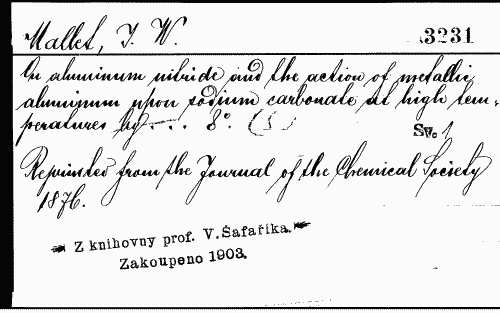 Mallet, J. W. 3231
On aluminum nitride and the action of metallic
aluminum upon sodium carbonate at high tem-
peratures by ... 8°. (S )
Sv. 1
Reprinted from the Journal of the Chemical Society
1876.
Z knihovny prof. V. Šafaříka.
Zakoupeno 1903.